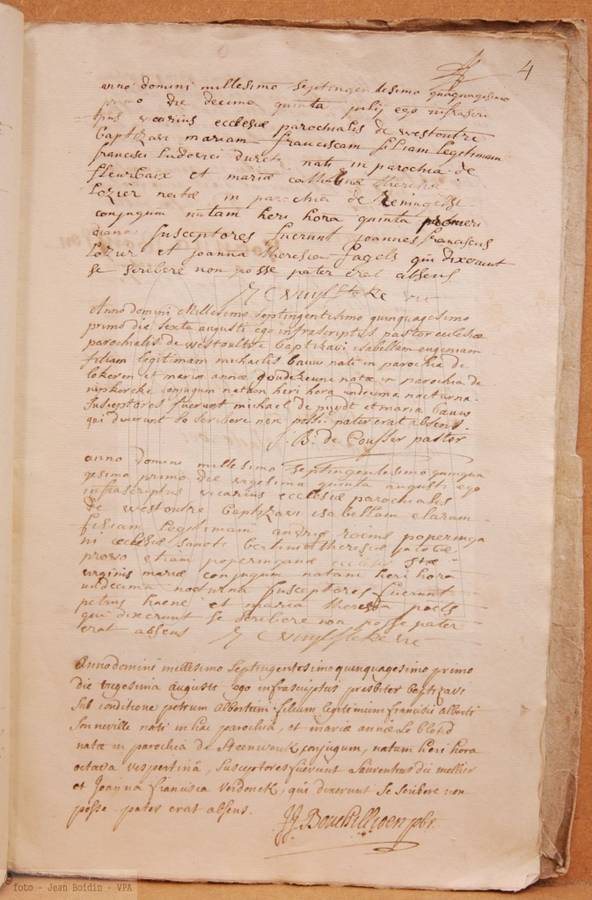 4
anno domini millesimo septingentesimo quinquagesimo
primo die decima quinta julij ego infrascri
ptus vicarius ecclesiæ parochialis de westoutre
baptizavi mariam franciscam filiam legitimam
francisci ludovici nati in parochia de
fleurbaix et mariæ
natæ in parochia de Reningelst
conjugum natam heri hora quinta pomeri
diana susceptores fuerunt joannes franciscus
et joanna Theresia fagels qui dixerunt
se scribere non posse pater erat absens
Anno domini Millesimo septingentesimo quinquagesimo
primo die sexta augusti ego infrascriptus pastor ecclesiæ
parochialis de westoultre baptizavi isabellam eugeniam
filiam legitimam michaelis bauw nati in parochia de
lokeren et mariæ annæ goudezeune natæ in parochia de
conjugum natam heri hora undecima nocturna.
Susceptores fuerunt michael de puydt et maria bauw
qui dixerunt se scribere non posse. pater erat absens.
J. B. de Cousser pastor
anno domini millesimo septingentesimo quinqua
gesimo primo die vigesima quinta augusti ego
infrascriptus vicarius ecclesiæ parochialis
de westoutre baptizavi isabellam claram
filiam legitimam andreæ roens poperinga
ni ecclesiæ sancti bertini et theresiæ
etiam poperinganæ stæ
virginis mariæ conjugum natam heri hora
undecima nocturna susceptores fuerunt
petrus haene et maria theresia poels
qui dixerunt se scribere non posse pater
erat absens
Anno domini millesimo septingentesimo quinquagesimo primo
die vigesima augusti ego infrascriptus presbiter baptizavi
sub conditione petrum albertum filium legitimum francisci alberti
Sonneville nati in hac parochia, et mariæ annæ Le blond
natæ in parochia de Steenwerck conjugum, natum heri hora
octava vespertina, susceptores fuerunt Laurentius de mellier
et Joanna francisca verdonck, qui dixerunt se scribere non
posse pater erat absens.
foto - Jean Boidin - VPA